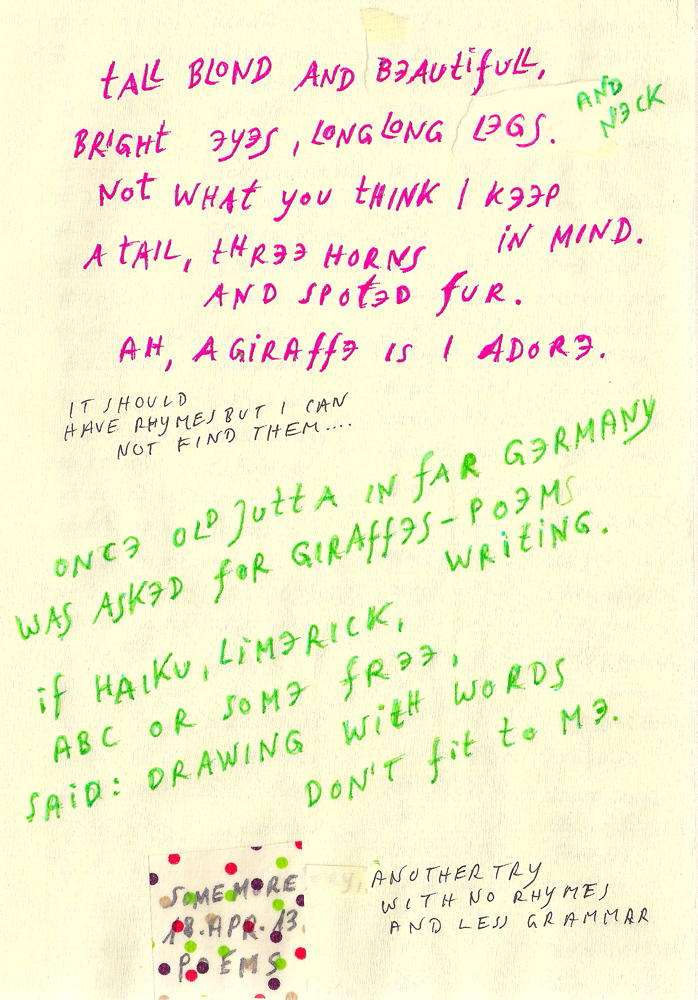 tALL BLOND AND BEAUtifuLL,
BRIGHt EYES, LONG LONG LEGS.
AND
NECK
Not WHAt you tHINK I KEEP
iN MIND.
A tAIL, tHREE HORNS
AND SPOtED fUR.
AH, A GiRAffE IS I ADORE.
IT SHOULD
HAVE RHYMES BUT I CAN
NOT FIND THEM....
ONCE OLD JuttA IN fAR GERMANY
WAS ASKED foR GIRAffES-POEMS
WRItING.
if HAIKU, LiMERICK,
ABC OR SOME fREE,
SAiD: DRAWING WitH WORDS
DON'T fit to ME.
SOME MORE
18.APR.13
POEMS
ANOTHER TRY
WITH NO RHYMES
AND LESS GRAMMAR